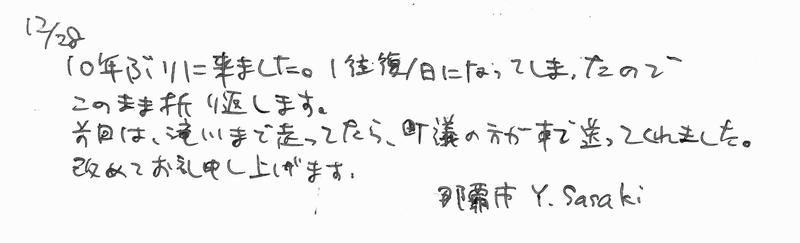 12/28
10年ぶりに来ました。1往復/日になってしまったので
このまま折り返します。
前回は、滝川まで走ってたら、町議の方が車で送ってくれました。
改めてお礼申し上げます.
那覇市 Y. Sasaki